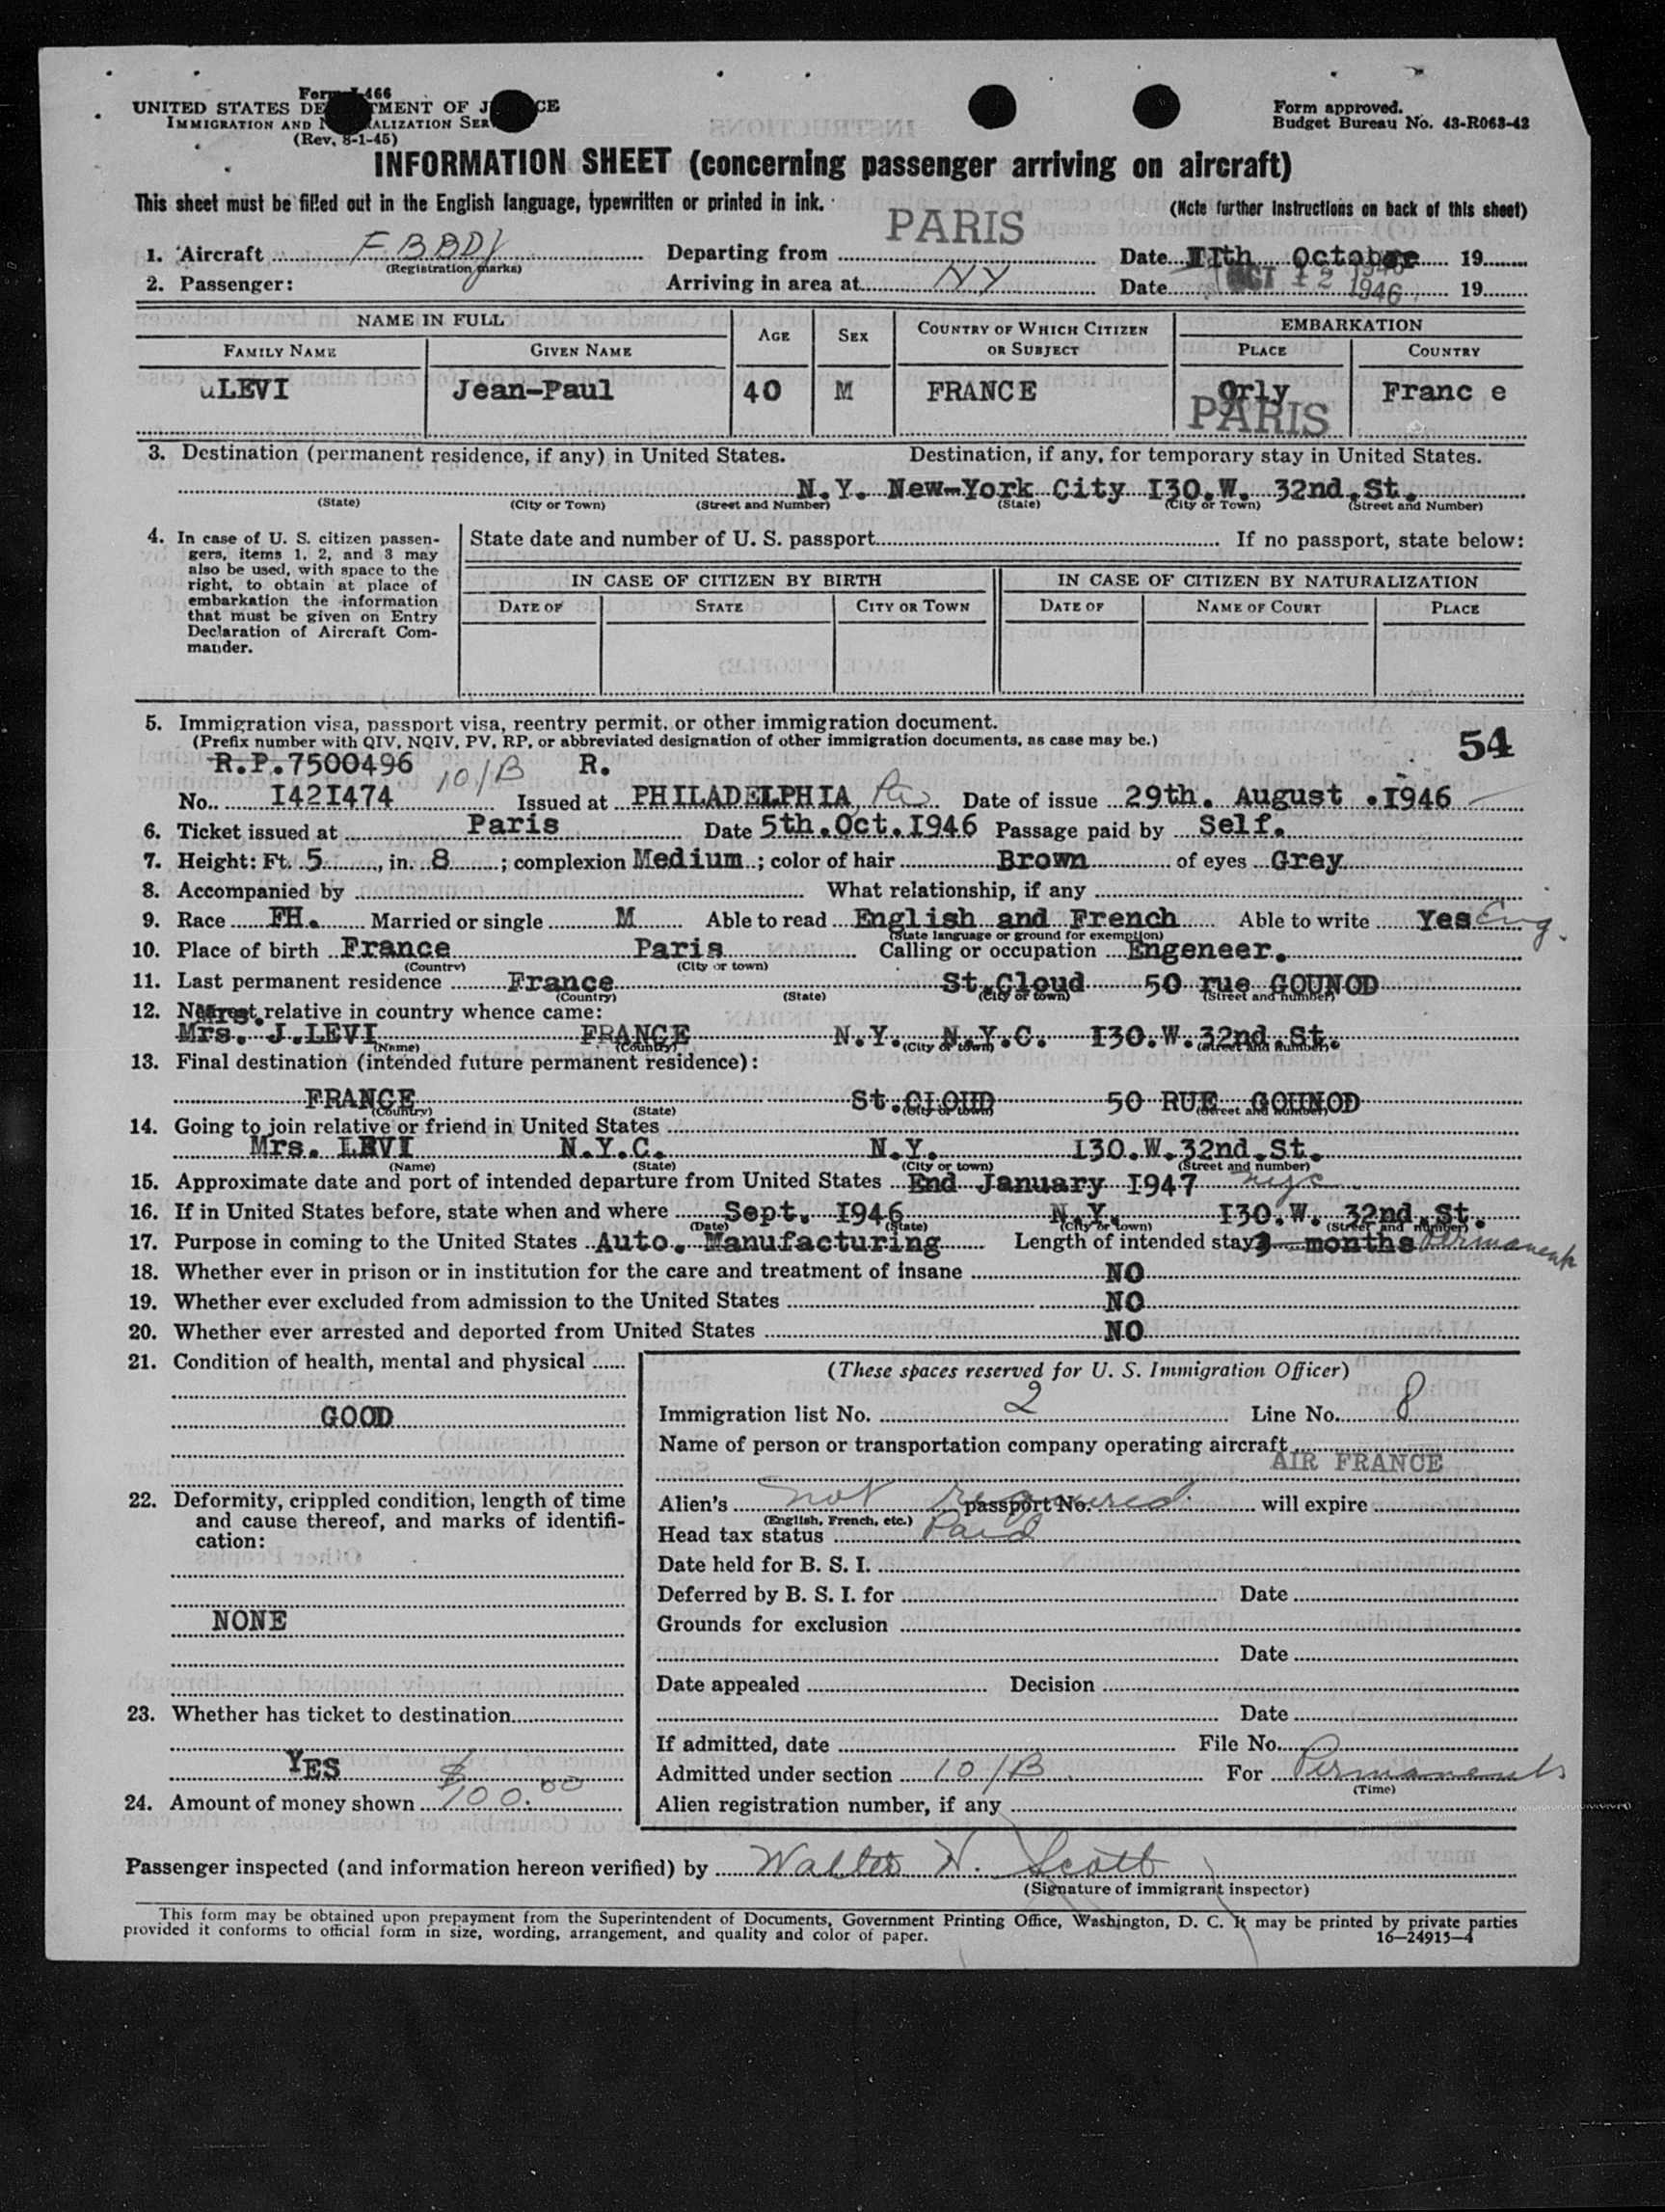 Form I-466
UNITED STATES DEPARTMENT OF JUSTICE
IMMIGRATION AND NATURALIZATION SERVICE
(Rev. 8-1-45)
Form approved.
Budget Bureau No. 43-R063-42
INFORMATION SHEET (concerning passenger arriving on aircraft)
This sheet must be filled out in the English language, typewritten or printed in ink.
(Note further instructions on back of this sheet)
1. Aircraft FBBDY Departing from PARIS Date IIth October 19
(Registration marks)
2. Passenger: Arriving in area at NY Date OCT 12 1946 19
NAME IN FULL AGE SEX COUNTRY OF WHICH CITIZEN OR SUBJECT EMBARKATION
FAMILY NAME GIVEN NAME PLACE COUNTRY
LEVI Jean-Paul 40 M FRANCE Orly Franc e
PARIS
3. Destination (permanent residence, if any) in United States. Destination, if any, for temporary stay in United States.
N.Y. New-York City I30.W. 32nd.St.
(State) (City or Town) (Street and Number) (State) (City or Town) (Street and Number)
4. In case of U. S. citizen passengers, items 1, 2, and 3 may also be used, with space to the right, to obtain at place of embarkation the information that must be given on Entry Declaration of Aircraft Commander.
State date and number of U. S. passport If no passport, state below:
IN CASE OF CITIZEN BY BIRTH IN CASE OF CITIZEN BY NATURALIZATION
DATE OF STATE CITY OR TOWN DATE OF NAME OF COURT PLACE
5. Immigration visa, passport visa, reentry permit, or other immigration document.
(Prefix number with QIV, NQIV, PV, RP, or abbreviated designation of other immigration documents, as case may be.)
54
R.P.7500496 10/B R.
No. I42I474 Issued at PHILADELPHIA Pa Date of issue 29th. August .I946
6. Ticket issued at Paris Date 5th.Oct.I946 Passage paid by Self.
7. Height: Ft. 5, in. 8; complexion Medium; color of hair Brown of eyes Grey
8. Accompanied by What relationship, if any
9. Race FH. Married or single M Able to read English and French Able to write Yes Eng.
(State language or ground for exemption)
10. Place of birth France Paris Calling or occupation Engeneer.
(Country) (City or town)
11. Last permanent residence France St.Cloud 50 rue GOUNOD
(Country) (State) (City or town) (Street and number)
12. Nearest relative in country whence came:
Mrs. J.LEVI FRANCE N.Y. N.Y.C. I30.W.32nd.St.
(Name) (Country) (City or town) (Street and number)
13. Final destination (intended future permanent residence):
FRANCE St.CLOUD 50 RUE GOUNOD
(Country) (State) (City or town) (Street and number)
14. Going to join relative or friend in United States
Mrs. LEVI N.Y.C. N.Y. I30.W.32nd.St.
(Name) (State) (City or town) (Street and number)
15. Approximate date and port of intended departure from United States End January I947 nyc
16. If in United States before, state when and where Sept. I946 N.Y. I30.W. 32nd.St.
(Date) (State) (City or town) (Street and number)
17. Purpose in coming to the United States Auto. Manufacturing Length of intended stay 3 months Permanent
18. Whether ever in prison or in institution for the care and treatment of insane NO
19. Whether ever excluded from admission to the United States NO
20. Whether ever arrested and deported from United States NO
21. Condition of health, mental and physical
GOOD
22. Deformity, crippled condition, length of time and cause thereof, and marks of identification:
NONE
23. Whether has ticket to destination
YES
24. Amount of money shown $100.00
(These spaces reserved for U. S. Immigration Officer)
Immigration list No. 2 Line No. 8
Name of person or transportation company operating aircraft
AIR FRANCE
Alien's not required passport No. will expire
(English, French, etc.)
Head tax status Paid
Date held for B. S. I.
Deferred by B. S. I. for Date
Grounds for exclusion
Date
Date appealed Decision
Date
If admitted, date File No.
Admitted under section 10/B For Permanent
(Time)
Alien registration number, if any
Passenger inspected (and information hereon verified) by Walter N. Scott
(Signature of immigrant inspector)
This form may be obtained upon prepayment from the Superintendent of Documents, Government Printing Office, Washington, D. C. It may be printed by private parties
provided it conforms to official form in size, wording, arrangement, and quality and color of paper.
16—24915-4